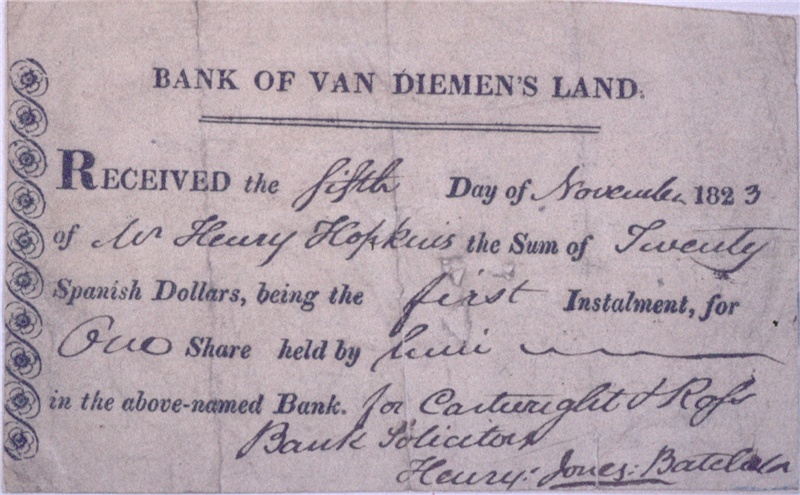 BANK OF VAN DIEMEN'S LAND.
RECEIVED the fifth Day of November 1823
of Mr Henry Hopkins the Sum of Twenty
Spanish Dollars, being the first Instalment, for
One Share held by him
in the above-named Bank. for Cartwright & Ross
Bank Solicitors
Henry: Jones: